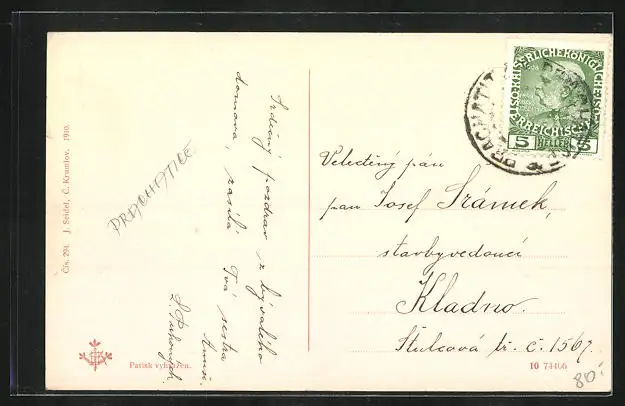 Čís. 294. J. Seidel, Č. Krumlov, 1910.
PRACHATICE
Srdečný pozdrav z bývalého
domova, zasílá Tvá sestra
Patisk vyhrazen.
KAISERLICHE KÖNIGLICHE
ÖSTERREICHISCHE
5 HELLER 5
PRACHATIT
Velectěný pán
pan Josef Šrámek,
stavbyvedoucí
Kladno.
Štulcová tř. č. 1567.
10 74406
80.-